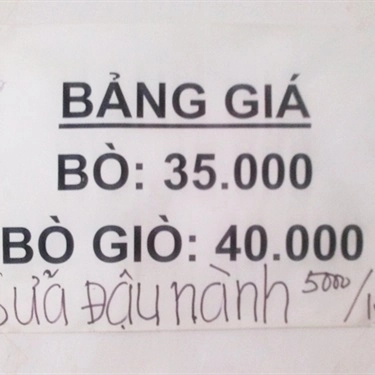 BẢNG GIÁ
BÒ: 35.000
BÒ GIÒ: 40.000
Sữa Đậu nành 5000/